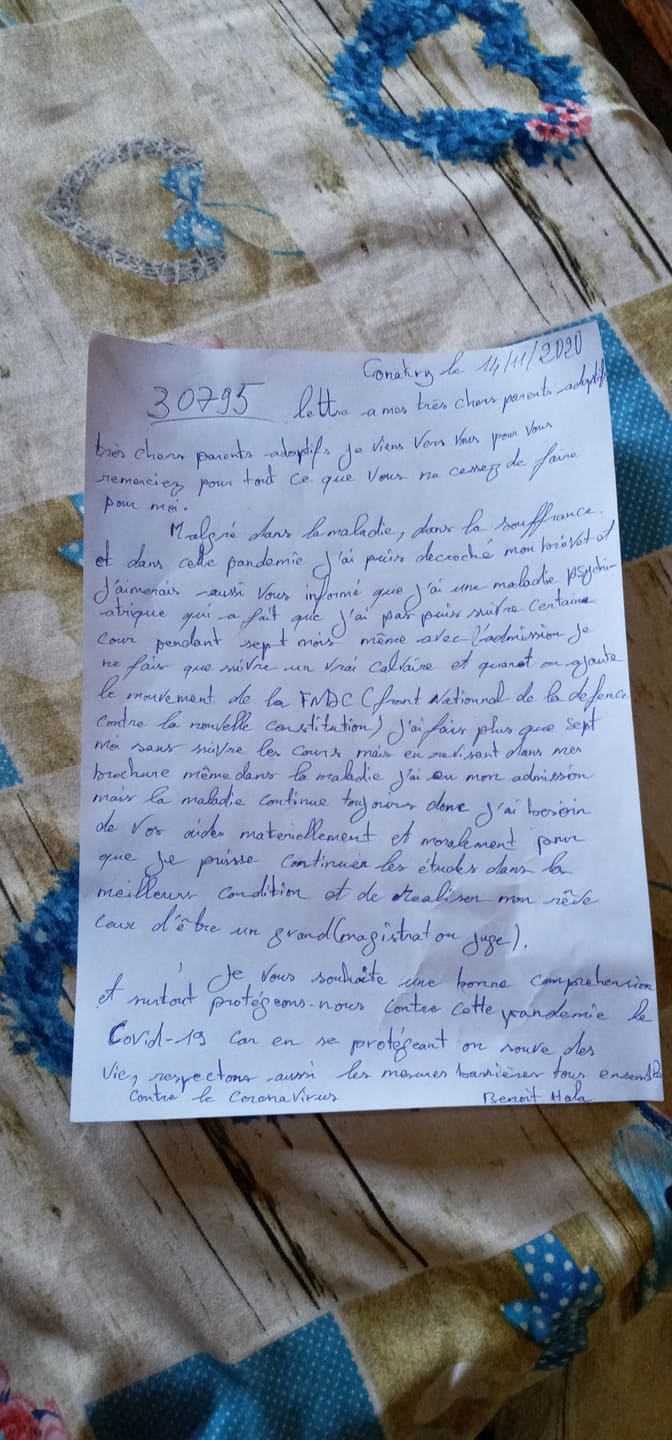 Conakry le 14/11/2020
30795 lettre a mes très chers parents adoptifs
très chers parents adoptifs je viens vers vous pour vous
remerciez pour tout ce que vous ne cessez de faire
pour moi.
Malgré dans la maladie, dans la souffrance
et dans cette pandemie j'ai puis decroché mon brevet et
j'aimerais aussi vous informé que j'ai une maladie psychi-
atrique qui a fait que j'ai pas puis suivre certaine
cour pendant sept mois même avec l'admission je
ne fais que suivre un vrai calvaire et quand on ajoute
le mouvement de la FNDC (front Nationnal de la defence
contre la nouvelle constitution) j'ai fais plus que sept
moi sans suivre les cours mais en revisant dans mes
brochure même dans la maladie j'ai eu mon admission
mais la maladie continue toujours donc j'ai besoin
de vos aides materiellement et moralement pour
que je puisse continuer les études dans la
meilleurs condition et de realiser mon rêve
ceux d'être un grand (magistrat ou juge).
Je vous souhaite une bonne comprehension
et surtout protégeons-nous contre cette pandemie le
Covid-19 car en se protégeant on sauve des
vie, respectons aussi les mesures barrières tous ensemble
contre le CoronaVirus Benoit Hala